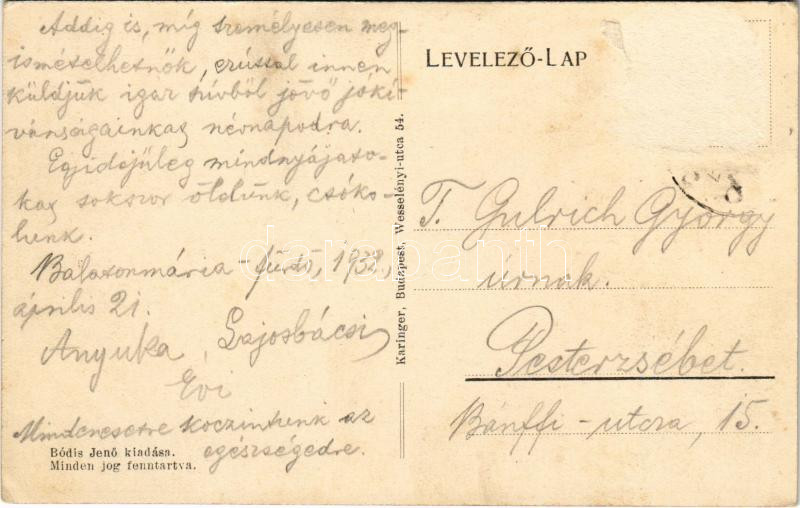 Addig is, míg személyesen meg-
ismételhetnők, ezúttal innen
küldjük igaz szívből jövő jókí-
vánságainkat névnapodra.
Egyidejűleg mindnyájato-
kat sokszor ölelünk, csóko-
lunk.
Balatonmária-fürdő, 1932,
április 21.
Anyuka, Lajosbácsi
Evi
Mindenesetre koczintunk az
egészségedre.
Bódis Jenő kiadása.
Minden jog fenntartva.
Karinger, Budapest, Wesselényi-utca 54.
LEVELEZŐ-LAP
T. Gulrich György
úrnak.
Pesterzsébet.
Bánffi-utcza, 15.
darabanth